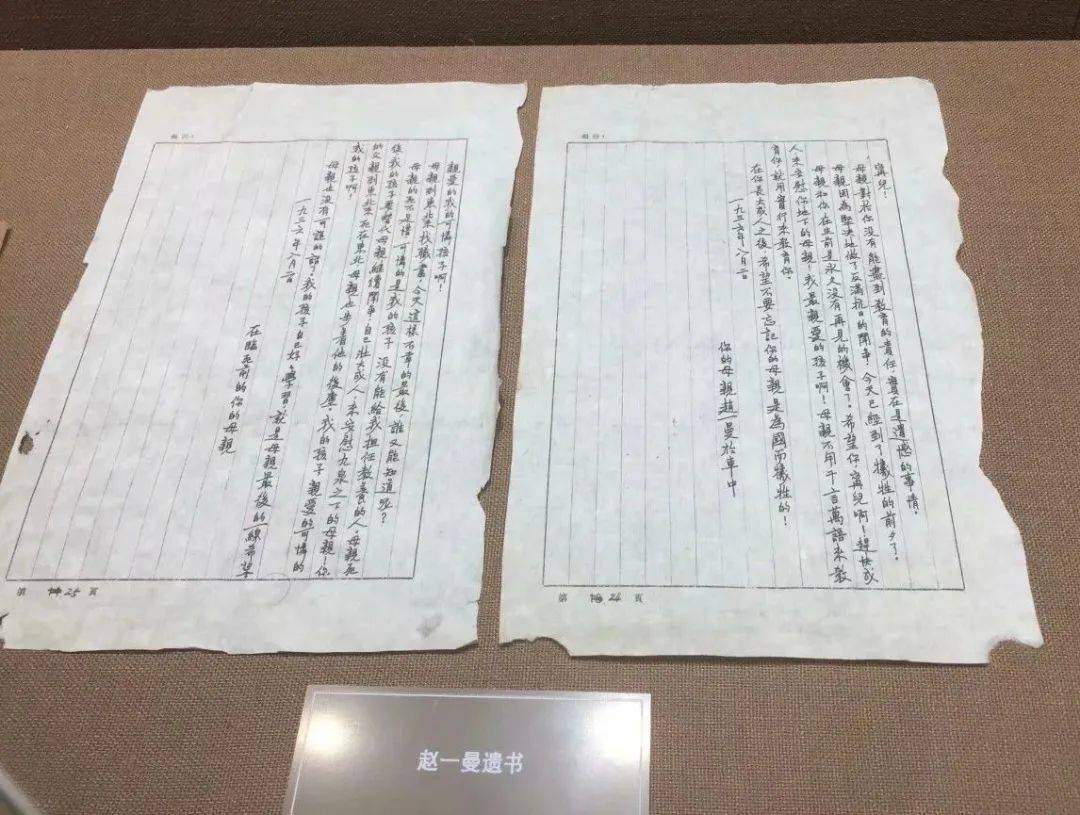 親愛的我的可憐孩子啊！
母親到東北來找職業，今天這樣不幸的最後，誰又能知道呢？
母親的死不足惜，可憐的是我的孩子，沒有能給我担任教養的人。母親死
後，我的孩子要替代母親繼續鬥爭，自己壯大成人，來安慰九泉之下的母親！你
的父親到東北來死在東北，母親也步着他的後塵。我的孩子，親愛的可憐的
我的孩子啊！
母親也沒有可說的話了，我的孩子自己好好學習，就是母親最後的一線希望
一九三六年八月二日
在臨死前的你的母親
第 25 頁
寧兒！
母親對於你沒有能盡到教育的責任，實在是遺憾的事情。
母親因為堅決地做了反滿抗日的鬥爭，今天已經到了犧牲的前夕了。
母親和你在生前是永久沒有再見的機會了。希望你，寧兒啊！趕快成
人，來安慰你地下的母親！我最親愛的孩子啊！母親不用千言萬語來教
育你，就用實行來教育你。
在你長大成人之後，希望不要忘記你的母親是為國而犧牲的！
一九三六年八月二日
你的母親趙一曼於車中
第 26 頁
赵一曼遗书